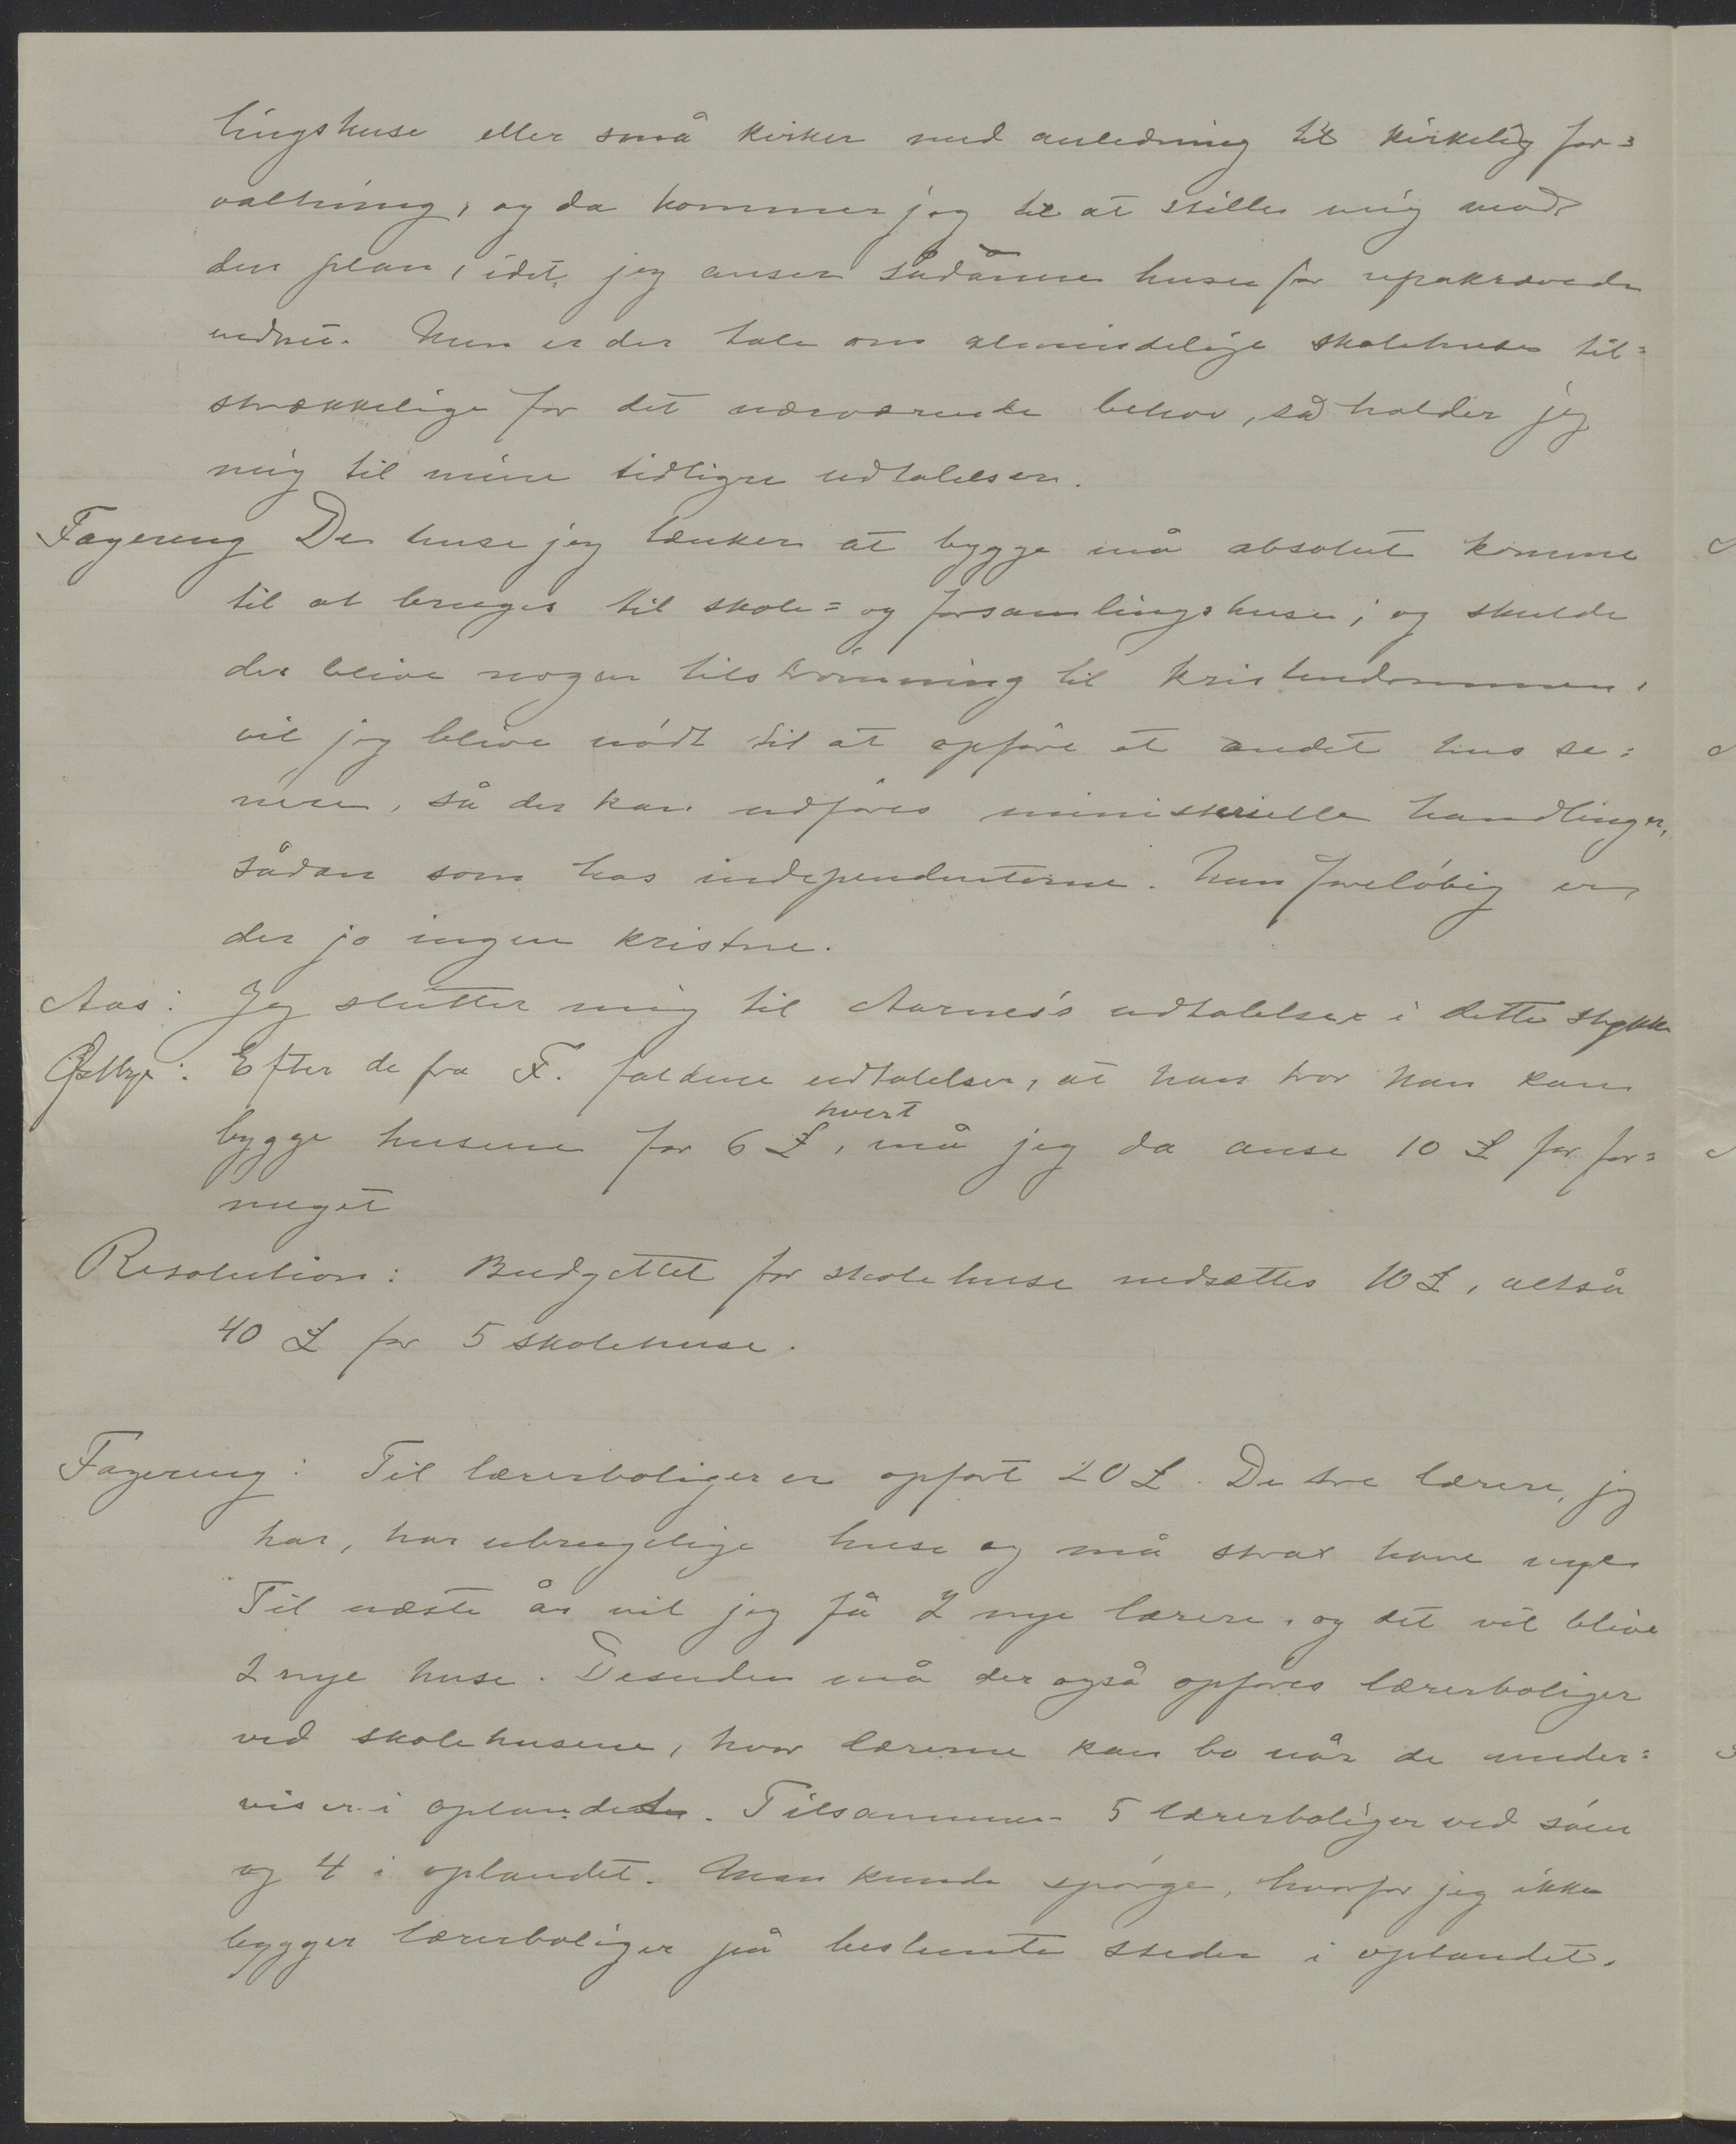 lingshuse eller små kirker med anledning til kirkelig for=
valtning, og da kommer jeg til at stille mig mod
den plan, idet jeg anser sådanne huse for upåkrævede
endnu. Men er der tale om almindelige skolehuse til=
strækkelige for det nærværende behov, så holder jeg
mig til mine tidligere udtalelser.
Fagereng De huse jeg tænker at bygge må absolut komme
til at bruges til skole= og forsamlingshuse; og skulde
der blive nogen tilströmning til kristendommen,
vil jeg blive nödt til at opføre et andet hus se=
nere, så der kan udföres ministerielle handlinger,
sådan som hos independenterne. Men foreløbig er
der jo ingen kristne.
Aas: Jeg slutter mig til Aarnes's udtalelser i dette stykke
Østbye: Efter de fra F. faldene udtalelser, at han tror han kan
bygge husene for 6 £ hvert, må jeg da anse 10 £ for for=
meget
Resolution: Budgettet for skolehuse nedsættes 10 £, altså
40 £ for 5 skolehuse.
Fagereng: Til lærerboliger er opført 20 £. De tre lærere, jeg
har, har ubrugelige huse og må strax have nye.
Til næste år vil jeg få 2 nye lærere, og det vil blive
2 nye huse. Desuden må der også opføres lærerboliger
ved skolehusene, hvor lærerne kan bo når de under=
viser i oplandet. Tilsammen 5 lærerboliger ved söen
og 4 i oplandet. Man kunde spörge, hvorfor jeg ikke
bygger lærerboliger på bestemte steder i oplandet.